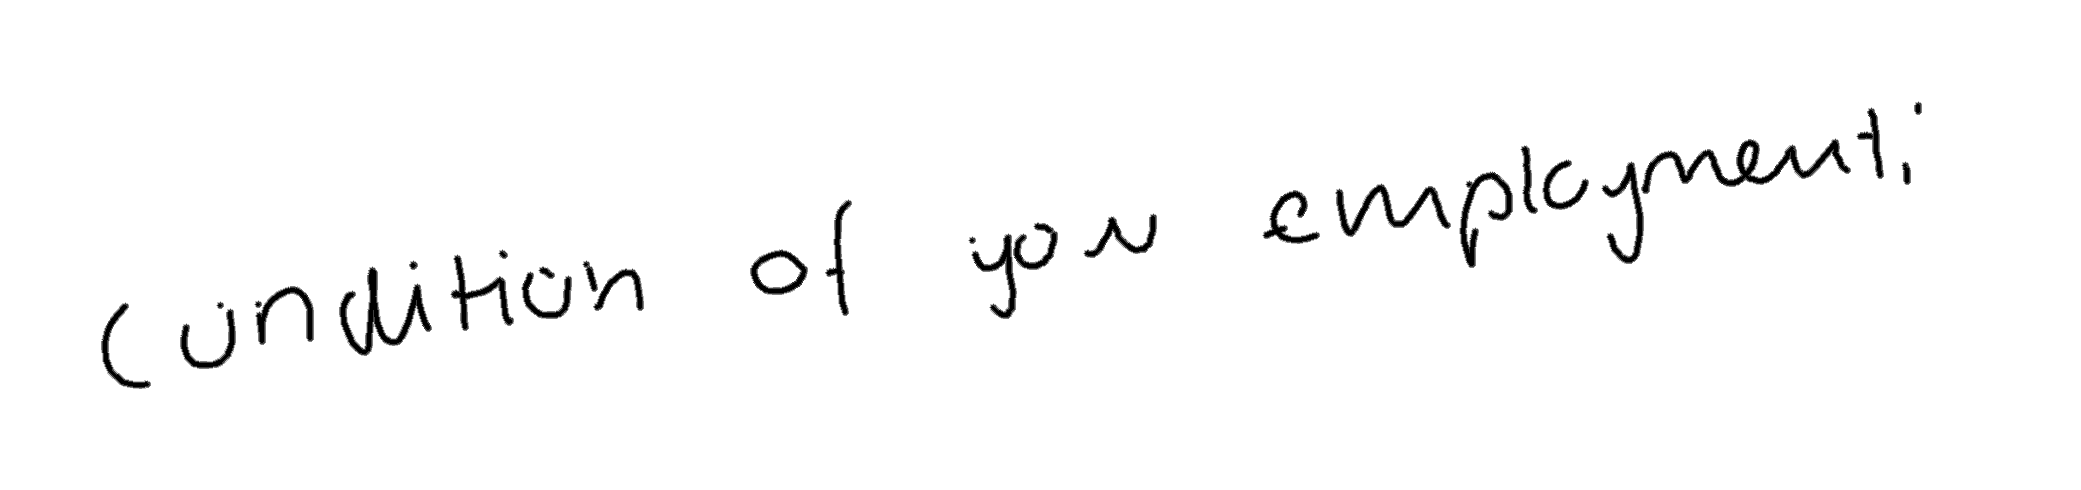 condition of you employment: